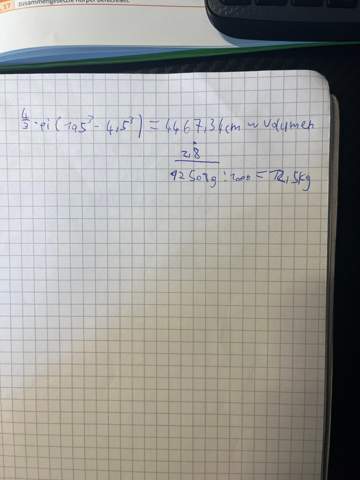 17
zusammengesetzte Körper berechnen.
4/3 · pi ( 10,5³ - 4,5³ ) = 4467,34 cm ~ Volumen
· 2,8
12508g : 1000 = 12,5kg